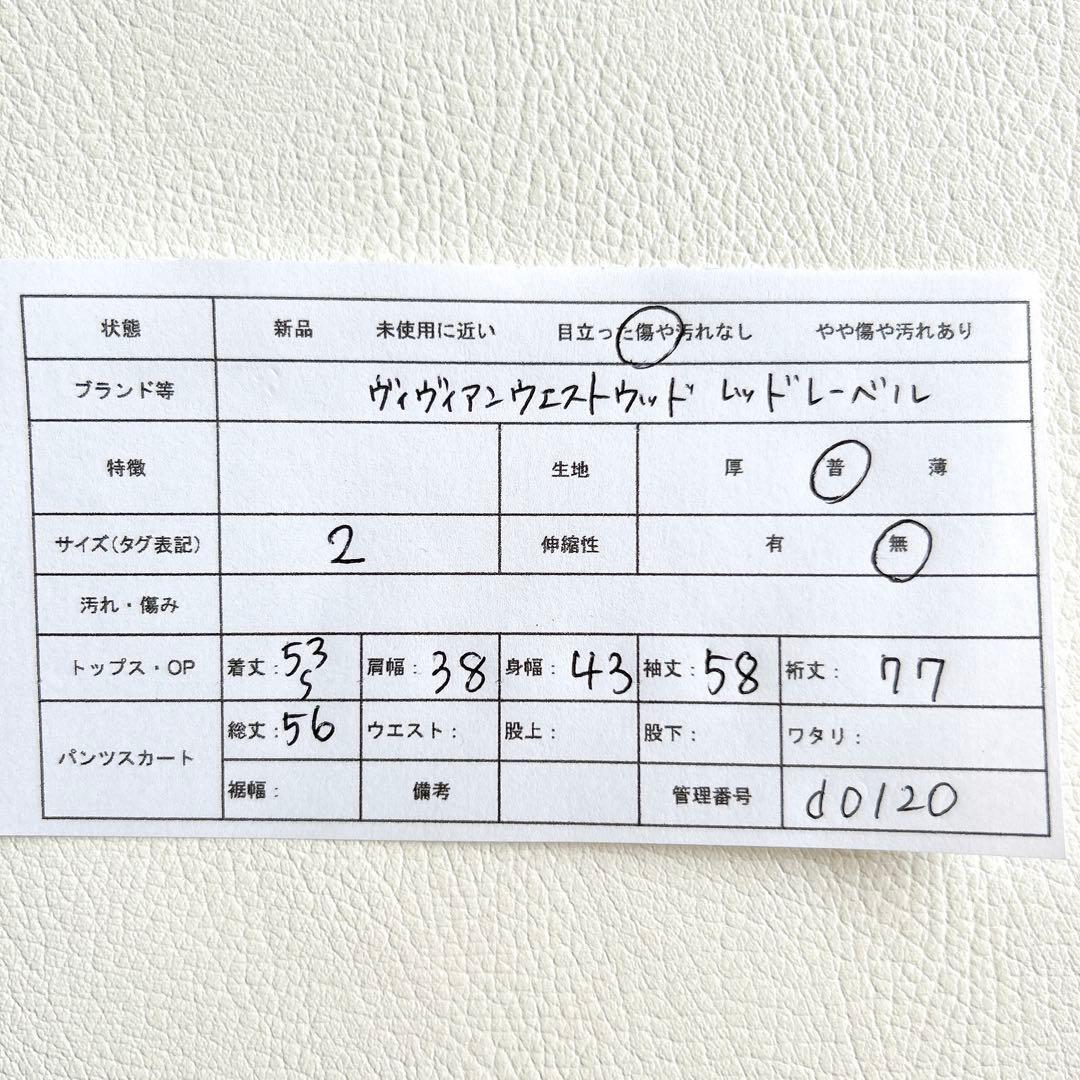 状態 新品 未使用に近い 目立った傷や汚れなし やや傷や汚れあり
ブランド等 ヴィヴィアンウエストウッド レッドレーベル
特徴 生地 厚 普 薄
サイズ(タグ表記) 2 伸縮性 有 無
汚れ・傷み
トップス・OP 着丈:53 肩幅:38 身幅:43 袖丈:58 裄丈:77
S
パンツスカート 総丈:56 ウエスト: 股上: 股下: ワタリ:
裾幅: 備考 管理番号 d0120